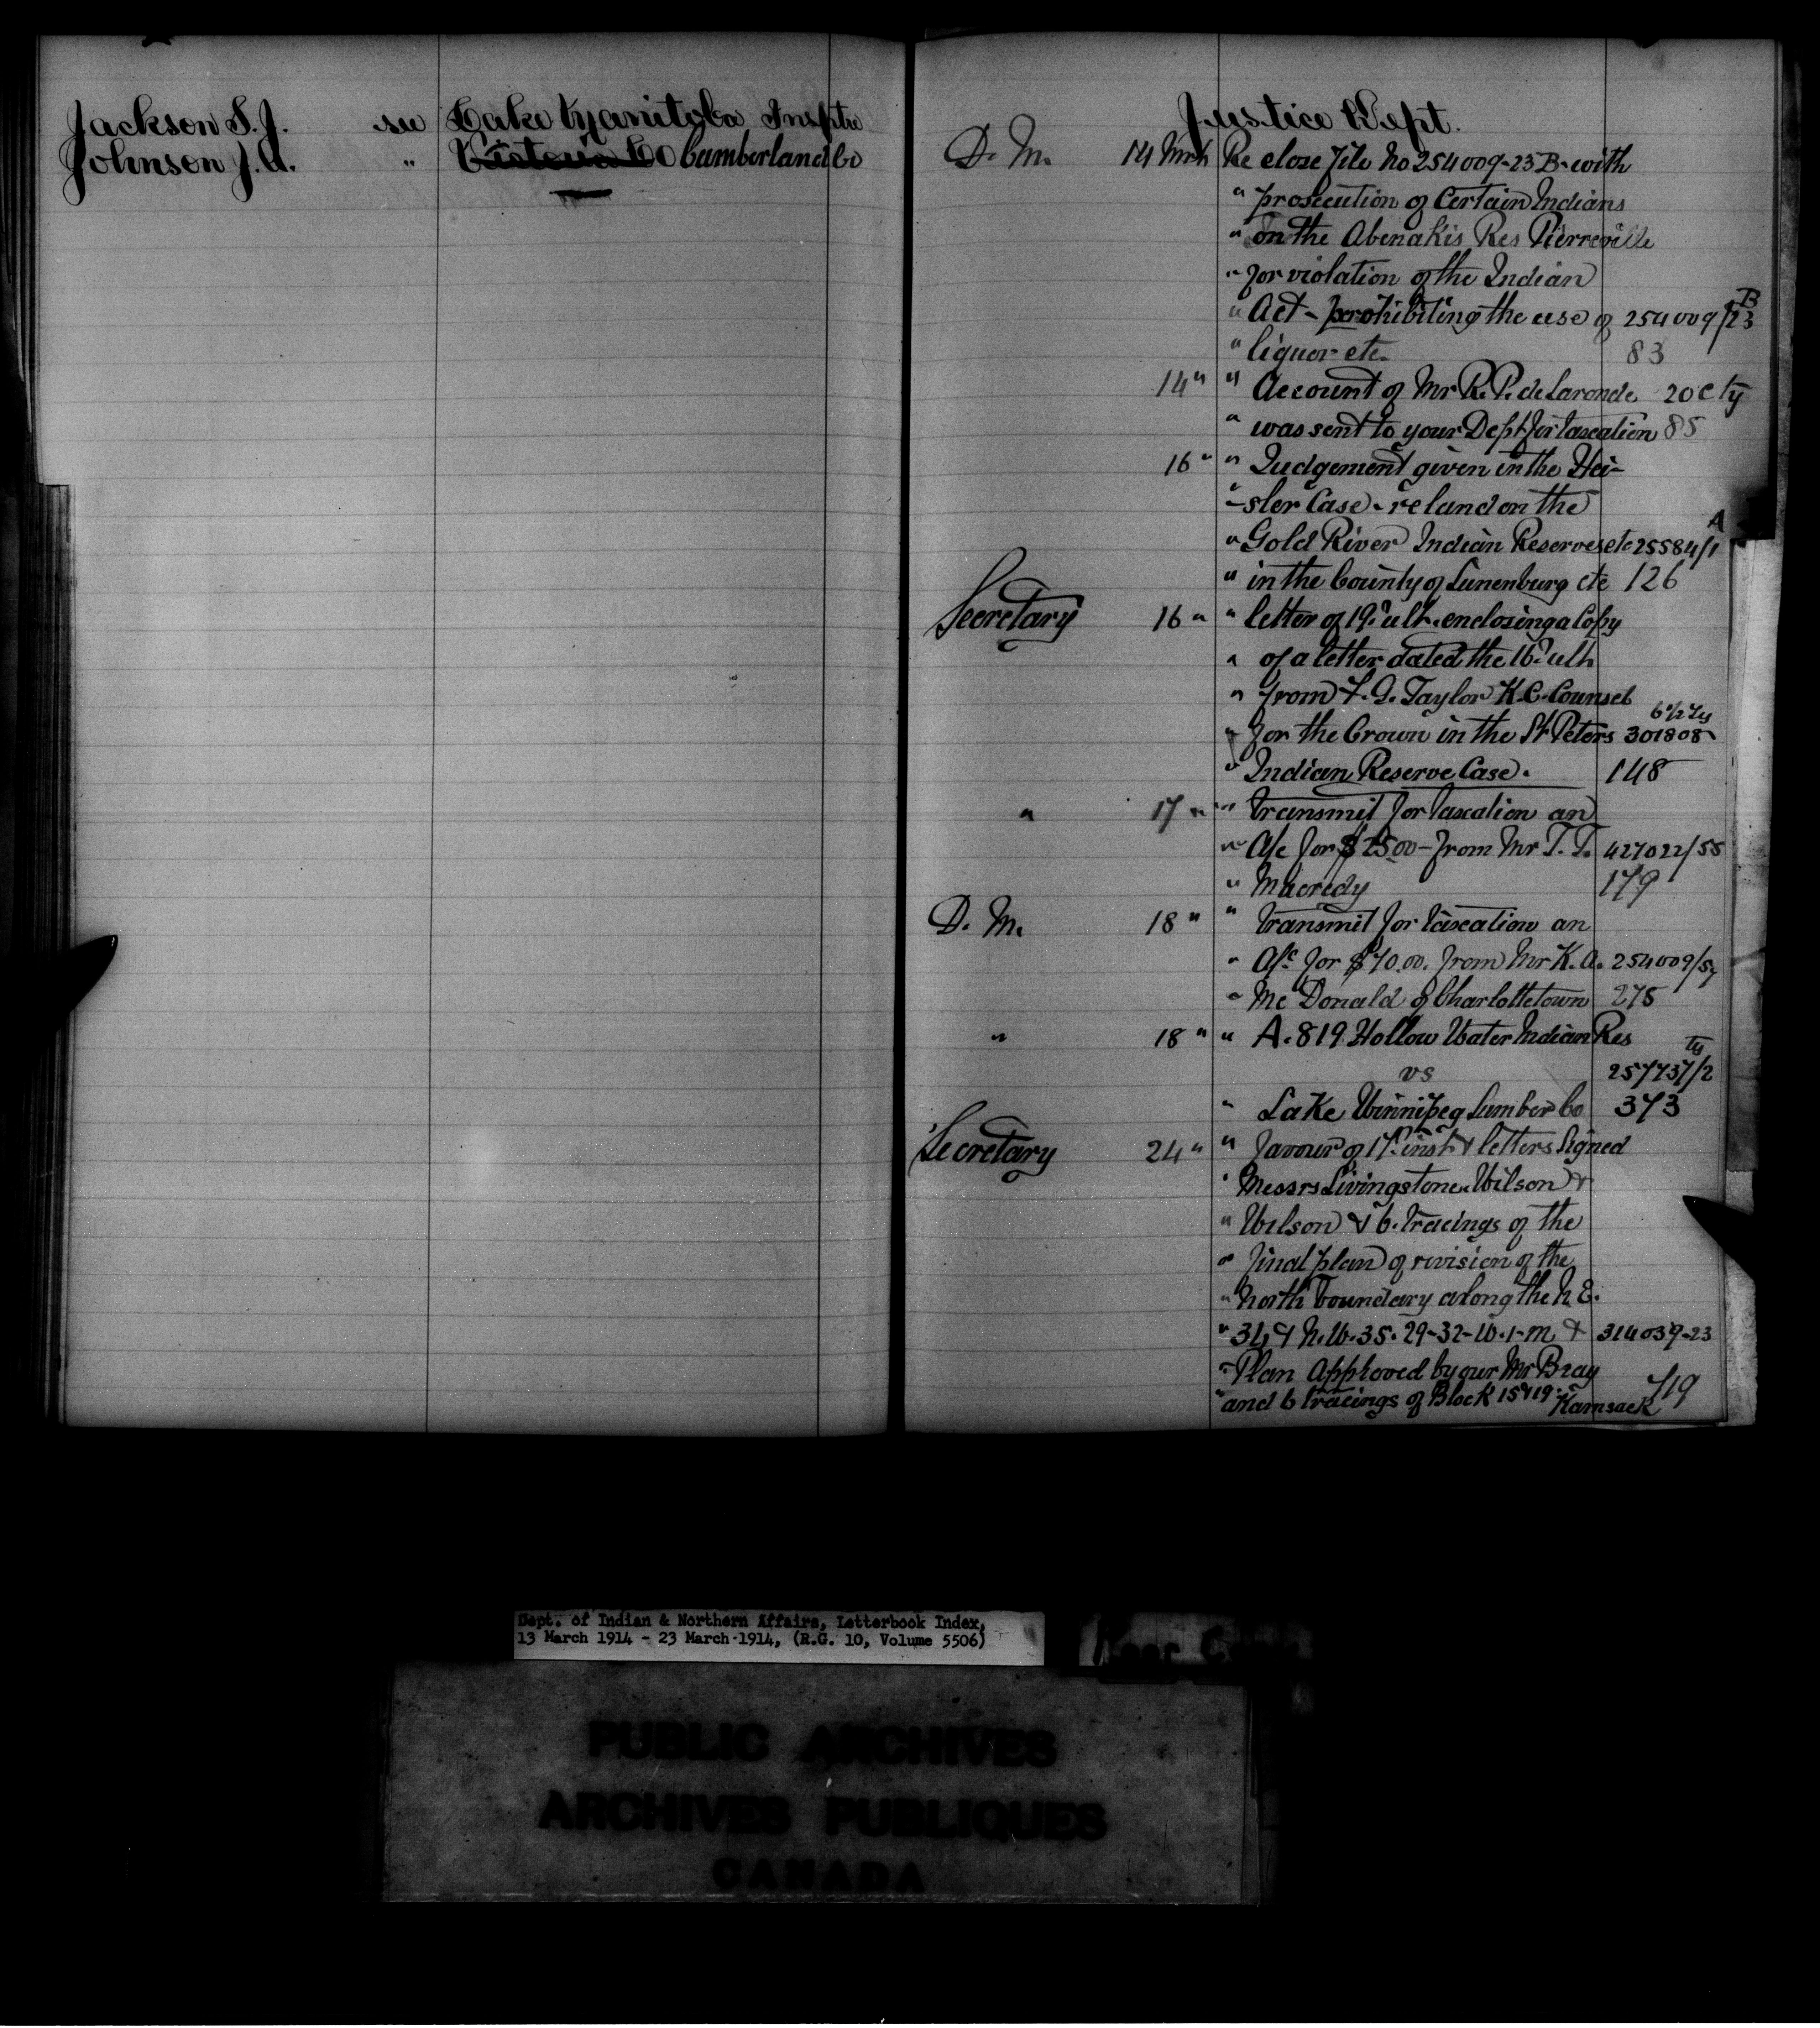 Jackson S. J. see Lake Manitoba Insptr
Johnson J. A. " Victoria Co Cumberland Co
Justice Dept.
D. M. 14 Mrch Re close file No 254009-23 B- with
" prosecution of Certain Indians
" on the Abenakis Res Pierreville
" for violation of the Indian
" Act - prohibiting the use of 254009/23 B
" liquor etc. 83
14 " " Account of Mr R. P. de Laronde 20 C Ty
" was sent to your Dept for taxation 85
16 " " Judgement given in the Hei-
" -sler Case - re land on the
" Gold River Indian Reserves etc 25584/1 A
" in the County of Lunenburg etc 126
Secretary 16 " " letter of 19th ult. enclosing a Copy
" of a letter dated the 16th ult
" from F. G. Taylor K.C. Counsel
" for the Crown in the St Peters 301808
" Indian Reserve Case. 148
" 17 " " transmit for taxation an
" A/c for $25.00 - from Mr T. T. 427022/55
" Macredy 179
D. M. 18 " " transmit for taxation an
" A/c for $70.00. from Mr K. A. 254009/57
" Mc Donald of Charlottetown 275
" 18 " " A. 819 Hollow Water Indian Res Ty
vs 257737/2
" Lake Winnipeg Lumber Co 373
Secretary 24 " " favour of 17th inst & letters Signed
" Messrs Livingstone. Wilson &
" Wilson & 6. tracings of the
" final plan of revision of the
" North boundary along the N. E.
" 34 & N. W. 35. 29-32-W. 1-M & 314039-23
" Plan Approved by our Mr Bray
" and 6 tracings of Block 15 & 19 - Kamsack 719
Dept. of Indian & Northern Affairs, Letterbook Index,
13 March 1914 - 23 March 1914, (R.G. 10, Volume 5506)
PUBLIC ARCHIVES
ARCHIVES PUBLIQUES
CANADA